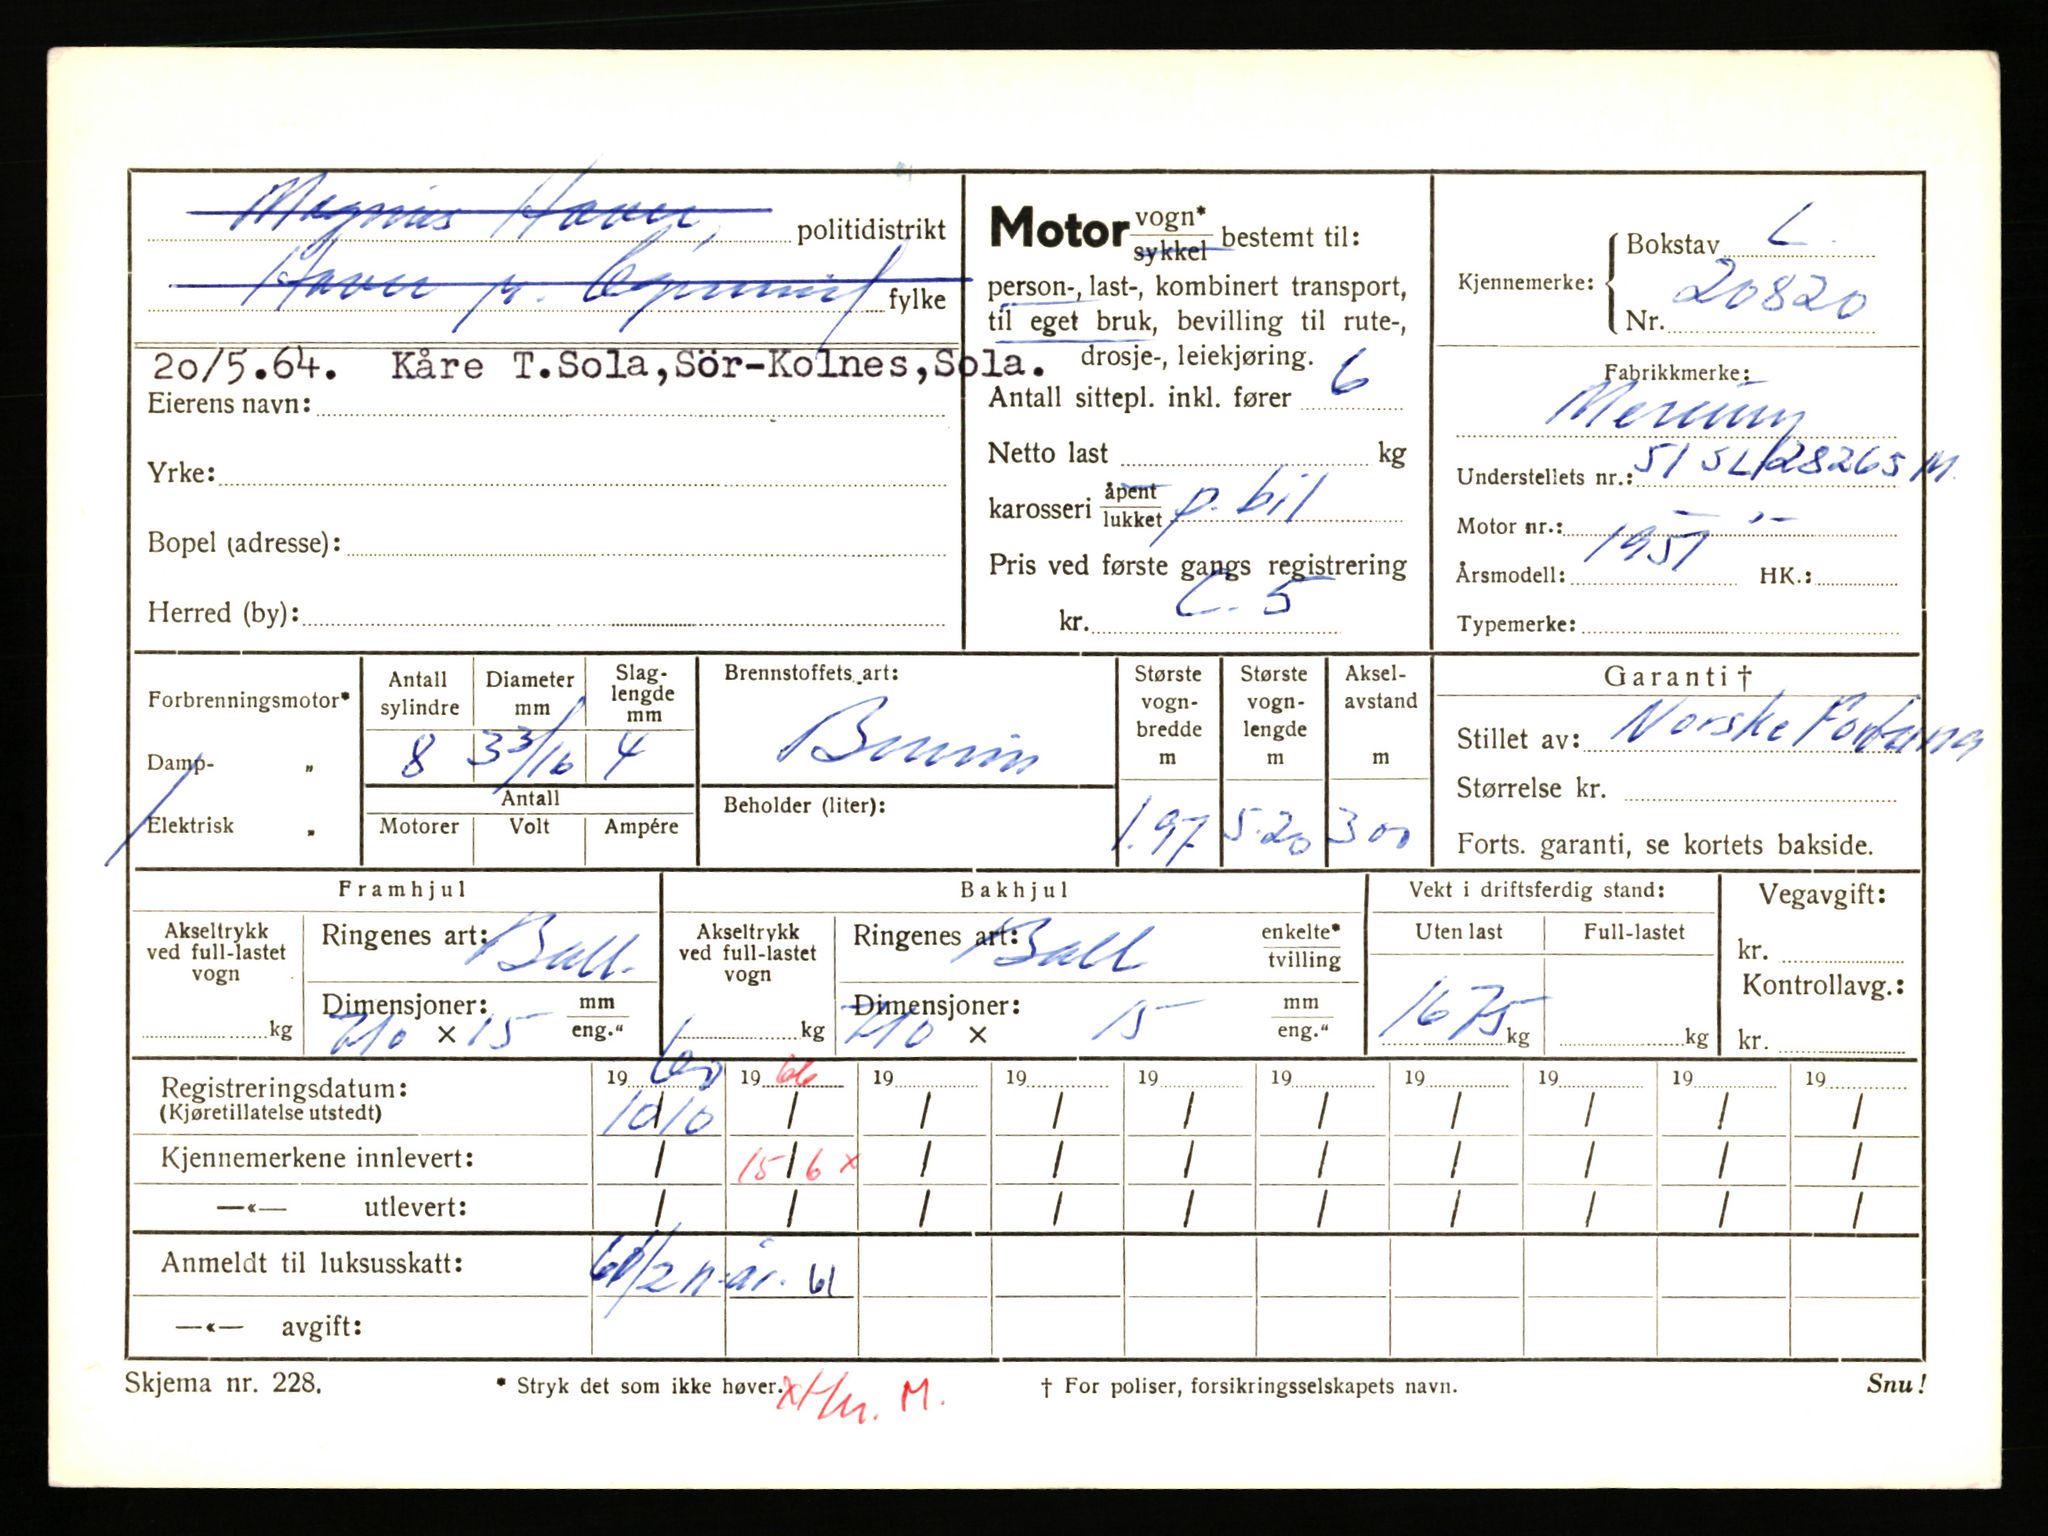 Magnus Haver, politidistrikt
Haver p. Egersund fylke
20/5.64. Kåre T.Sola,Sör-Kolnes,Sola.
Eierens navn:
Yrke:
Bopel (adresse):
Herred (by):
Motor vogn*/sykkel bestemt til:
person-, last-, kombinert transport,
til eget bruk, bevilling til rute-,
drosje-, leiekjøring.
Antall sittepl. inkl. fører 6
Netto last kg
karosseri åpent/lukket p. bil
Pris ved første gangs registrering
kr. C. 5
Kjennemerke: Bokstav L.
Nr. 20820
Fabrikkmerke:
Mercury
Understellets nr.: 51 SL 28265 M.
Motor nr.: — " —
Årsmodell: 1951 HK.:
Typemerke:
Forbrenningsmotor*
Damp- „
Elektrisk „
Antall sylindre Diameter mm Slaglengde mm
8 3 3/16 4
Antall
Motorer Volt Ampére
Brennstoffets art:
Bensin
Beholder (liter):
Største vognbredde m
1.97
Største vognlengde m
5.20
Akselavstand m
3 00
Garanti †
Stillet av: Norske Fortuna
Størrelse kr.
Forts. garanti, se kortets bakside.
Framhjul
Akseltrykk ved full-lastet vogn
kg
Ringenes art: Ball.
Dimensjoner: mm/eng."
710 × 15
Bakhjul
Akseltrykk ved full-lastet vogn
kg
Ringenes art: Ball enkelte*/tvilling
Dimensjoner: mm/eng."
710 × 15
Vekt i driftsferdig stand:
Uten last Full-lastet
1675 kg kg
Vegavgift:
kr.
Kontrollavg.:
kr.
Registreringsdatum: 19 60 19 66 19 19 19 19 19 19 19 19
(Kjøretillatelse utstedt) 10/10 / / / / / / / / /
Kjennemerkene innlevert: / 15/6 x / / / / / / / /
—«— utlevert: / / / / / / / / / /
Anmeldt til luksusskatt: 60/2 n-år. 61
—«— avgift:
Skjema nr. 228.
* Stryk det som ikke høver.
† For poliser, forsikringsselskapets navn.
Snu!
M.